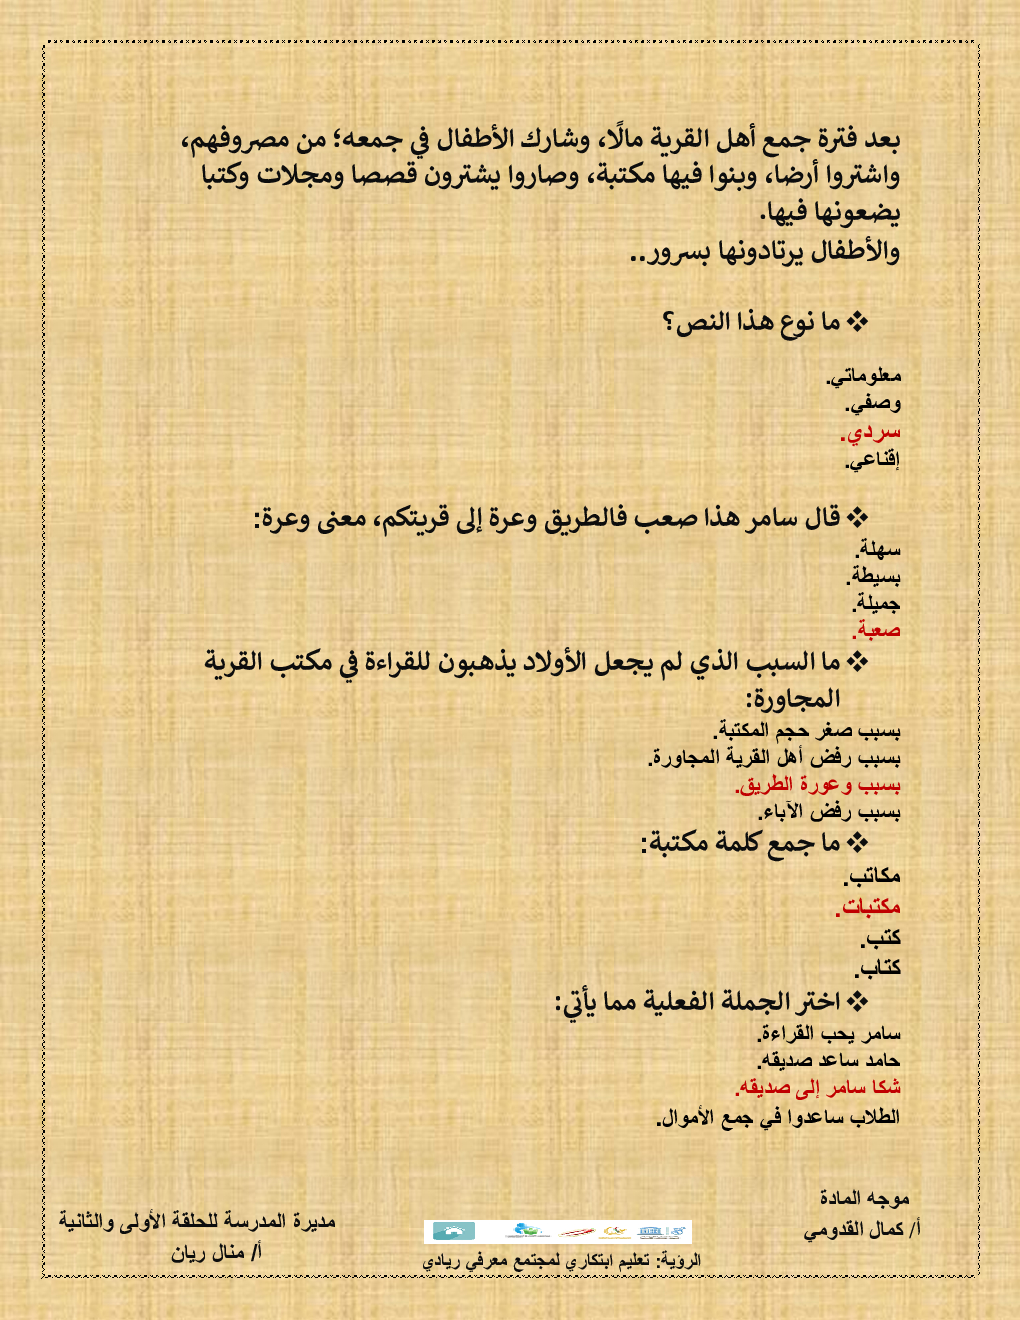 بعد فترة جمع أهل القرية مالًا، وشارك الأطفال في جمعه؛ من مصروفهم،
واشتروا أرضا، وبنوا فيها مكتبة، وصاروا يشترون قصصا ومجلات وكتبا
يضعونها فيها.
والأطفال يرتادونها بسرور..
❖ ما نوع هذا النص؟
معلوماتي.
وصفي.
سردي.
إقناعي.
❖ قال سامر هذا صعب فالطريق وعرة إلى قريتكم، معنى وعرة:
سهلة.
بسيطة.
جميلة.
صعبة.
❖ ما السبب الذي لم يجعل الأولاد يذهبون للقراءة في مكتب القرية
المجاورة:
بسبب صغر حجم المكتبة.
بسبب رفض أهل القرية المجاورة.
بسبب وعورة الطريق.
بسبب رفض الآباء.
❖ ما جمع كلمة مكتبة:
مكاتب.
مكتبات.
كتب.
كتاب.
❖ اختر الجملة الفعلية مما يأتي:
سامر يحب القراءة.
حامد ساعد صديقه.
شكا سامر إلى صديقه.
الطلاب ساعدوا في جمع الأموال.
موجه المادة
أ/ كمال القدومي
الرؤية: تعليم ابتكاري لمجتمع معرفي ريادي
مديرة المدرسة للحلقة الأولى والثانية
أ/ منال ريان